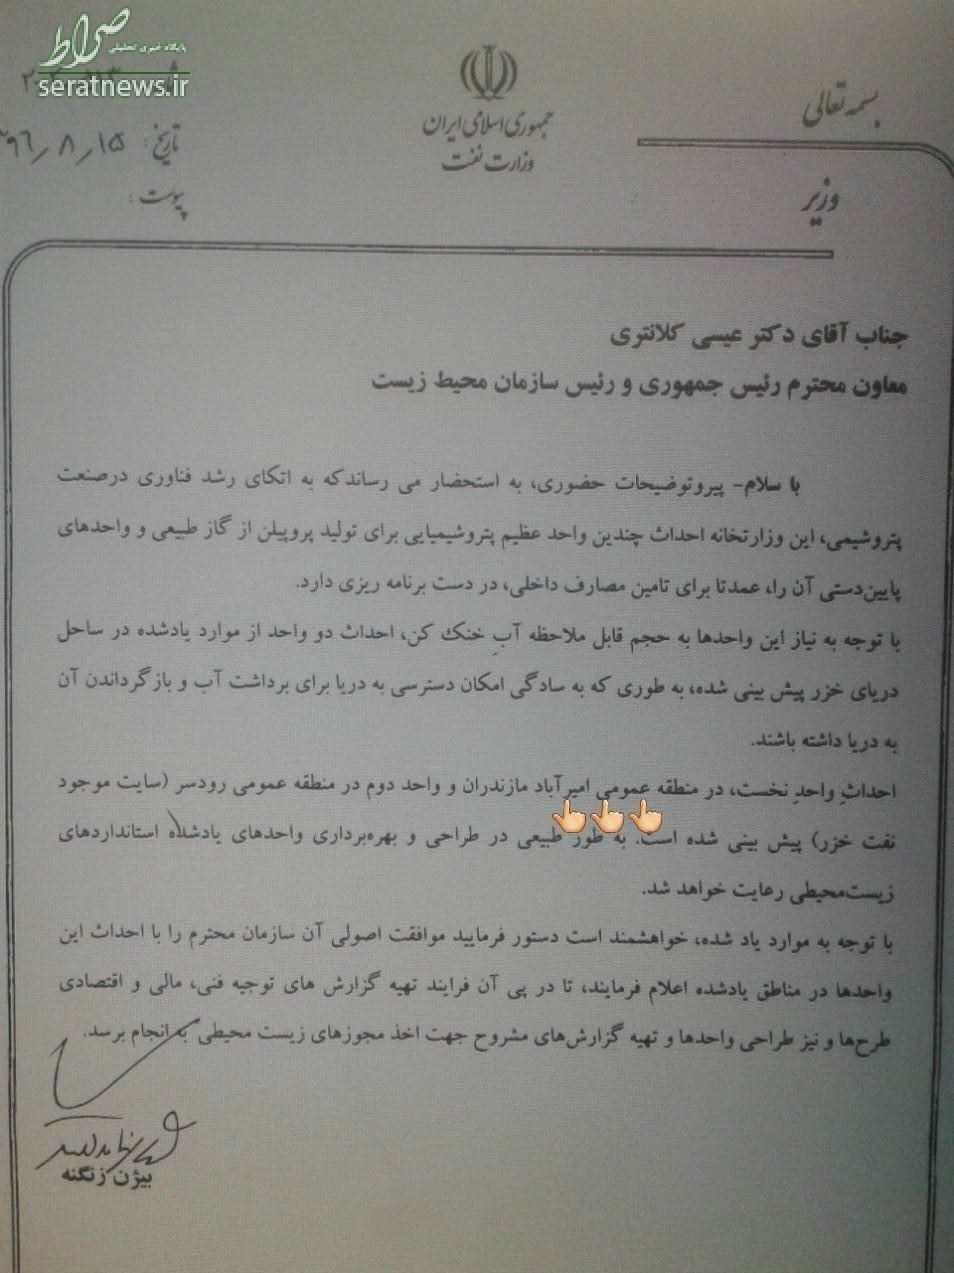 صراط
پایگاه خبری تحلیلی
seratnews.ir
بسمه تعالی
جمهوری اسلامی ایران
وزارت نفت
وزیر
تاریخ: ۹۶/۸/۱۵
پیوست:
جناب آقای دکتر عیسی کلانتری
معاون محترم رئیس جمهوری و رئیس سازمان محیط زیست
با سلام- پیروتوضیحات حضوری، به استحضار می رساندکه به اتکای رشد فناوری درصنعت
پتروشیمی، این وزارتخانه احداث چندین واحد عظیم پتروشیمیایی برای تولید پروپیلن از گاز طبیعی و واحدهای
پایین‌دستی آن را، عمدتا برای تامین مصارف داخلی، در دست برنامه ریزی دارد.
با توجه به نیاز این واحدها به حجم قابل ملاحظه آبِ خنک کن، احداث دو واحد از موارد یادشده در ساحل
دریای خزر پیش بینی شده، به طوری که به سادگی امکان دسترسی به دریا برای برداشت آب و بازگرداندن آن
به دریا داشته باشند.
احداثِ واحدِ نخست، در منطقه عمومی امیرآباد مازندران و واحد دوم در منطقه عمومی رودسر (سایت موجود
نفت خزر) پیش بینی شده است. به طور طبیعی در طراحی و بهره‌برداری واحدهای یادشده استانداردهای
زیست‌محیطی رعایت خواهد شد.
با توجه به موارد یاد شده، خواهشمند است دستور فرمایید موافقت اصولی آن سازمان محترم را با احداث این
واحدها در مناطق یادشده اعلام فرمایند، تا در پی آن فرایند تهیه گزارش های توجیه فنی، مالی و اقتصادی
طرح‌ها و نیز طراحی واحدها و تهیه گزارش‌های مشروح جهت اخذ مجوزهای زیست محیطی به انجام برسد.
بیژن زنگنه